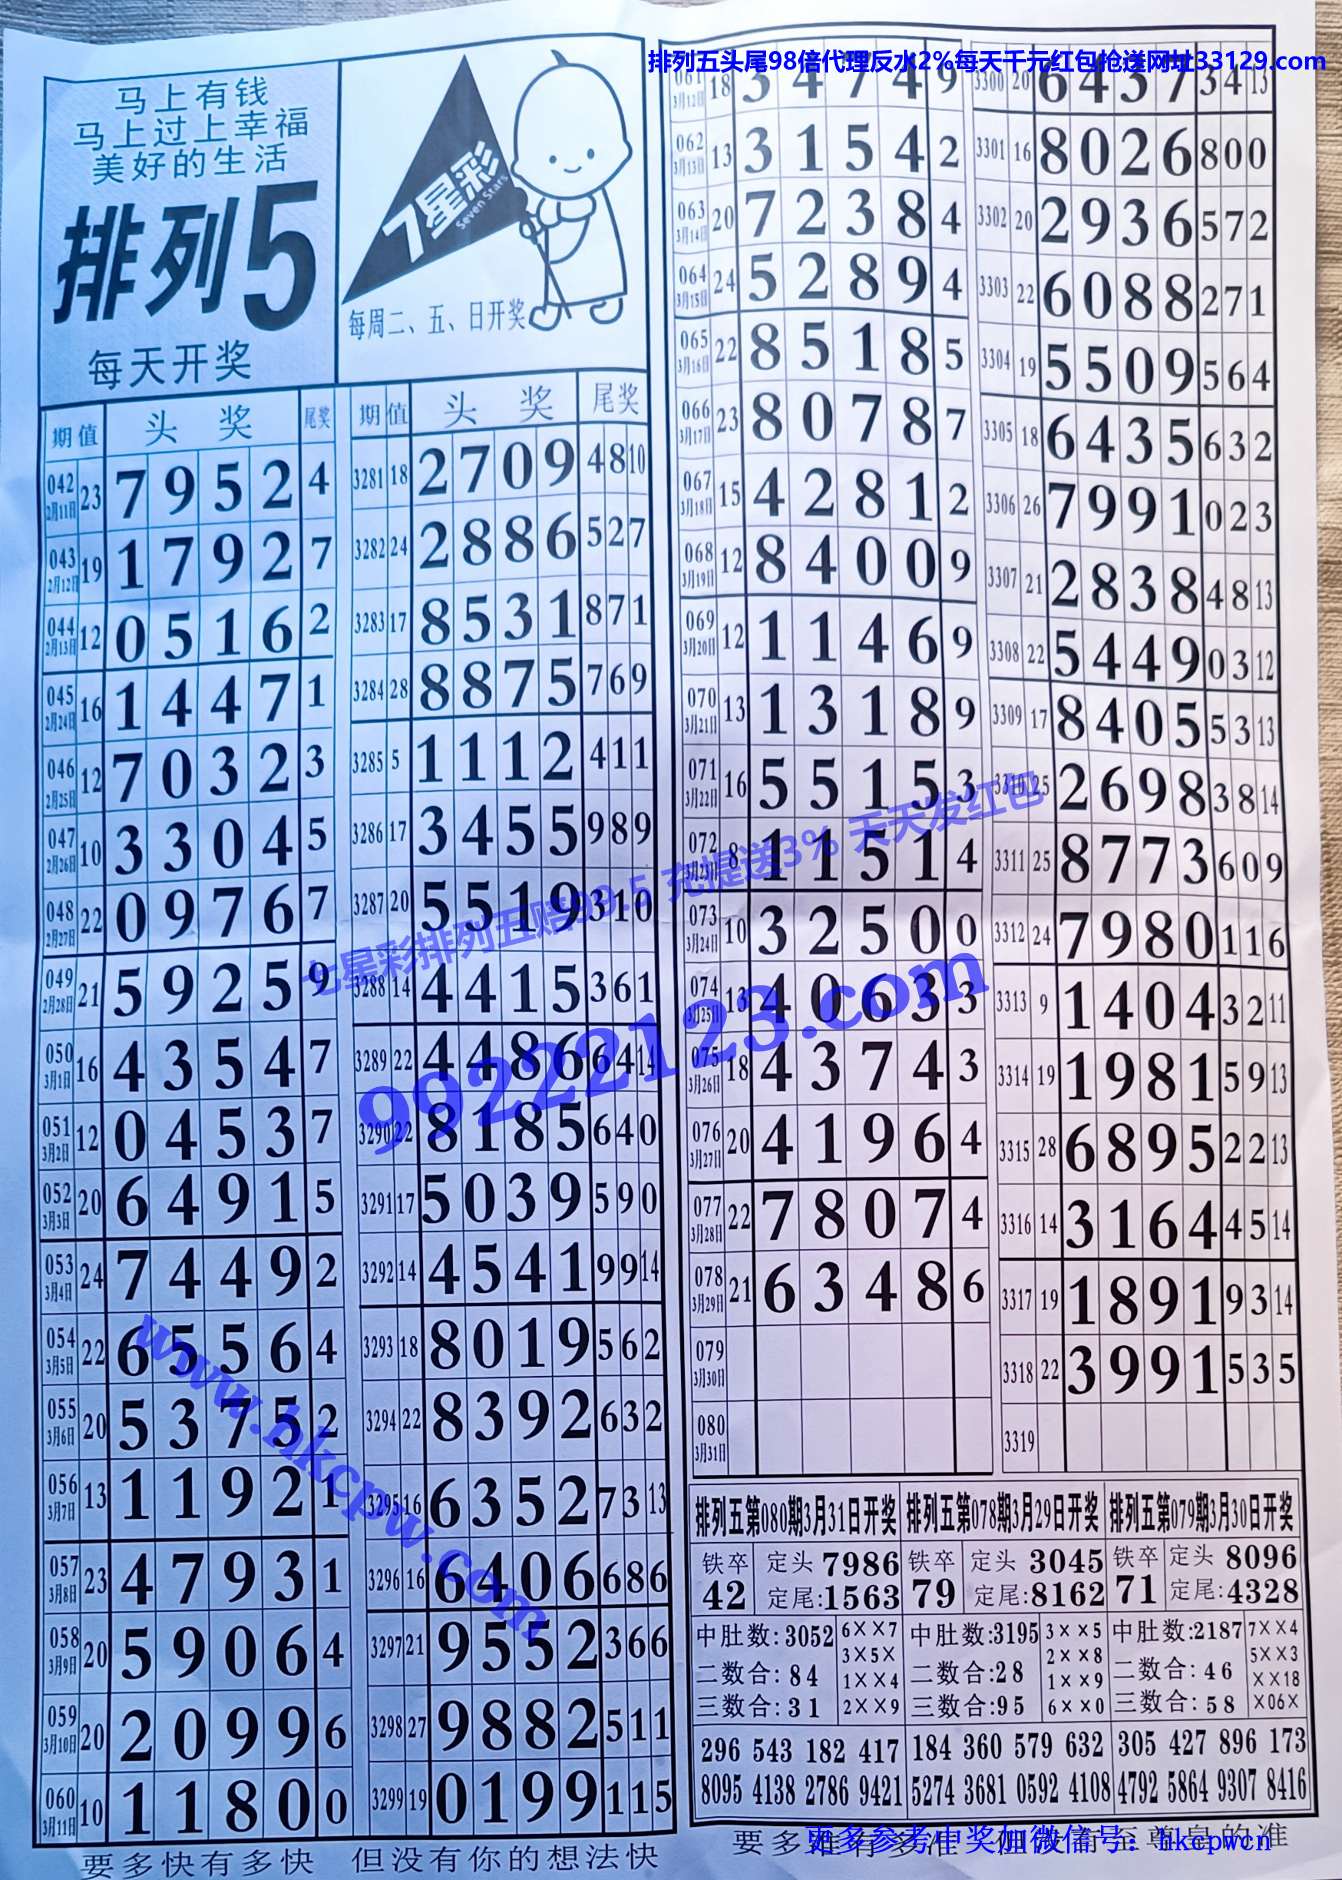 排列五头尾98倍代理反水2%每天千元红包抢送网址33129.com
马上有钱
马上过上幸福
美好的生活
排列5
每天开奖
7星彩
Seven Stars
每周二、五、日开奖
期 值 头 奖 尾奖
042 2月11日 23 7 9 5 2 4
043 2月12日 19 1 7 9 2 7
044 2月13日 12 0 5 1 6 2
045 2月24日 16 1 4 4 7 1
046 2月25日 12 7 0 3 2 3
047 2月26日 10 3 3 0 4 5
048 2月27日 22 0 9 7 6 7
049 2月28日 21 5 9 2 5 9
050 3月1日 16 4 3 5 4 7
051 3月2日 12 0 4 5 3 7
052 3月3日 20 6 4 9 1 5
053 3月4日 24 7 4 4 9 2
054 3月5日 22 6 5 5 6 4
055 3月6日 20 5 3 7 5 2
056 3月7日 13 1 1 9 2 1
057 3月8日 23 4 7 9 3 1
058 3月9日 20 5 9 0 6 4
059 3月10日 20 2 0 9 9 6
060 3月11日 10 1 1 8 0 0
期 值 头 奖 尾奖
3281 18 2 7 0 9 4 8 10
3282 24 2 8 8 6 5 2 7
3283 17 8 5 3 1 8 7 1
3284 28 8 8 7 5 7 6 9
3285 5 1 1 1 2 4 1 1
3286 17 3 4 5 5 9 8 9
3287 20 5 5 1 9 3 1 0
3288 14 4 4 1 5 3 6 1
3289 22 4 4 8 6 6 4 14
3290 22 8 1 8 5 6 4 0
3291 17 5 0 3 9 5 9 0
3292 14 4 5 4 1 9 9 14
3293 18 8 0 1 9 5 6 2
3294 22 8 3 9 2 6 3 2
3295 16 6 3 5 2 7 3 13
3296 16 6 4 0 6 6 8 6
3297 21 9 5 5 2 3 6 6
3298 27 9 8 8 2 5 1 1
3299 19 0 1 9 9 1 1 5
061 3月12日 18 3 4 7 4 9
062 3月13日 13 3 1 5 4 2
063 3月14日 20 7 2 3 8 4
064 3月15日 24 5 2 8 9 4
065 3月16日 22 8 5 1 8 5
066 3月17日 23 8 0 7 8 7
067 3月18日 15 4 2 8 1 2
068 3月19日 12 8 4 0 0 9
069 3月20日 12 1 1 4 6 9
070 3月21日 13 1 3 1 8 9
071 3月22日 16 5 5 1 5 3
072 3月23日 8 1 1 5 1 4
073 3月24日 10 3 2 5 0 0
074 3月25日 13 4 0 6 3 3
075 3月26日 18 4 3 7 4 3
076 3月27日 20 4 1 9 6 4
077 3月28日 22 7 8 0 7 4
078 3月29日 21 6 3 4 8 6
079 3月30日
080 3月31日
3300 20 6 4 3 7 3 4 13
3301 16 8 0 2 6 8 0 0
3302 20 2 9 3 6 5 7 2
3303 22 6 0 8 8 2 7 1
3304 19 5 5 0 9 5 6 4
3305 18 6 4 3 5 6 3 2
3306 26 7 9 9 1 0 2 3
3307 21 2 8 3 8 4 8 13
3308 22 5 4 4 9 0 3 12
3309 17 8 4 0 5 5 3 13
3310 25 2 6 9 8 3 8 14
3311 25 8 7 7 3 6 0 9
3312 24 7 9 8 0 1 1 6
3313 9 1 4 0 4 3 2 11
3314 19 1 9 8 1 5 9 13
3315 28 6 8 9 5 2 2 13
3316 14 3 1 6 4 4 5 14
3317 19 1 8 9 1 9 3 14
3318 22 3 9 9 1 5 3 5
3319
七星彩排列五赔99.5 充提送3% 天天发红包
99222123.com
www.hkcpw.com
排列五第080期3月31日开奖
铁卒 42 定头 7986
定尾:1563
中肚数:3052
二数合:84
三数合:31
6××7
3×5×
1××4
2××9
296 543 182 417
8095 4138 2786 9421
排列五第078期3月29日开奖
铁卒 79 定头 3045
定尾:8162
中肚数:3195
二数合:28
三数合:95
3××5
2××8
1××9
6××0
184 360 579 632
5274 3681 0592 4108
排列五第079期3月30日开奖
铁卒 71 定头 8096
定尾:4328
中肚数:2187
二数合:46
三数合:58
7××4
5××3
××18
×06×
305 427 896 173
4792 5864 9307 8416
要多快有多快 但没有你的想法快
要多准有多准 但没有至尊皇的准
更多参考中奖加微信号：hkcpwcn